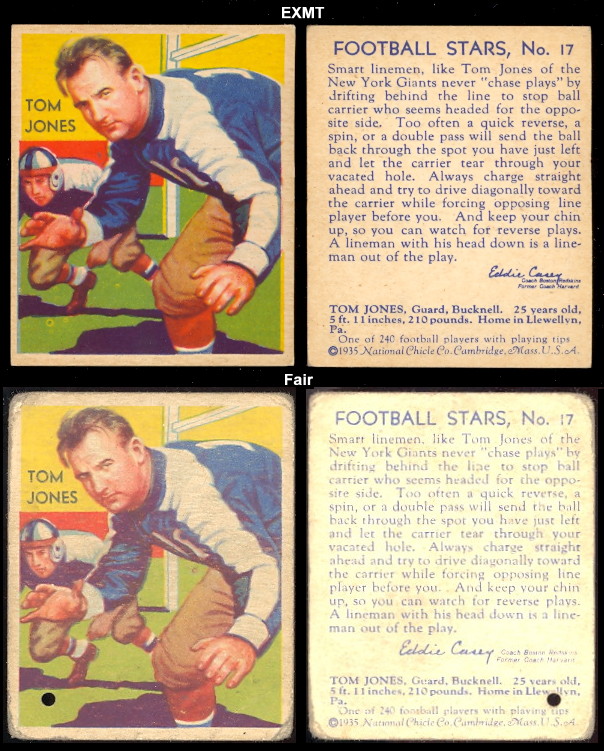 EXMT
TOM
JONES
FOOTBALL STARS, No. 17
Smart linemen, like Tom Jones of the
New York Giants never "chase plays" by
drifting behind the line to stop ball
carrier who seems headed for the oppo-
site side. Too often a quick reverse, a
spin, or a double pass will send the ball
back through the spot you have just left
and let the carrier tear through your
vacated hole. Always charge straight
ahead and try to drive diagonally toward
the carrier while forcing opposing line
player before you. And keep your chin
up, so you can watch for reverse plays.
A lineman with his head down is a line-
man out of the play.
Eddie Casey
Coach Boston Redskins
Former Coach Harvard
TOM JONES, Guard, Bucknell. 25 years old,
5 ft. 11 inches, 210 pounds. Home in Llewellyn,
Pa.
One of 240 football players with playing tips
©1935 National Chicle Co. Cambridge, Mass. U.S.A.
Fair
TOM
JONES
FOOTBALL STARS, No. 17
Smart linemen, like Tom Jones of the
New York Giants never "chase plays" by
drifting behind the line to stop ball
carrier who seems headed for the oppo-
site side. Too often a quick reverse, a
spin, or a double pass will send the ball
back through the spot you have just left
and let the carrier tear through your
vacated hole. Always charge straight
ahead and try to drive diagonally toward
the carrier while forcing opposing line
player before you. And keep your chin
up, so you can watch for reverse plays.
A lineman with his head down is a line-
man out of the play.
Eddie Casey
Coach Boston Redskins
Former Coach Harvard
TOM JONES, Guard, Bucknell. 25 years old,
5 ft. 11 inches, 210 pounds. Home in Llewellyn,
Pa.
One of 240 football players with playing tips
©1935 National Chicle Co. Cambridge, Mass. U.S.A.